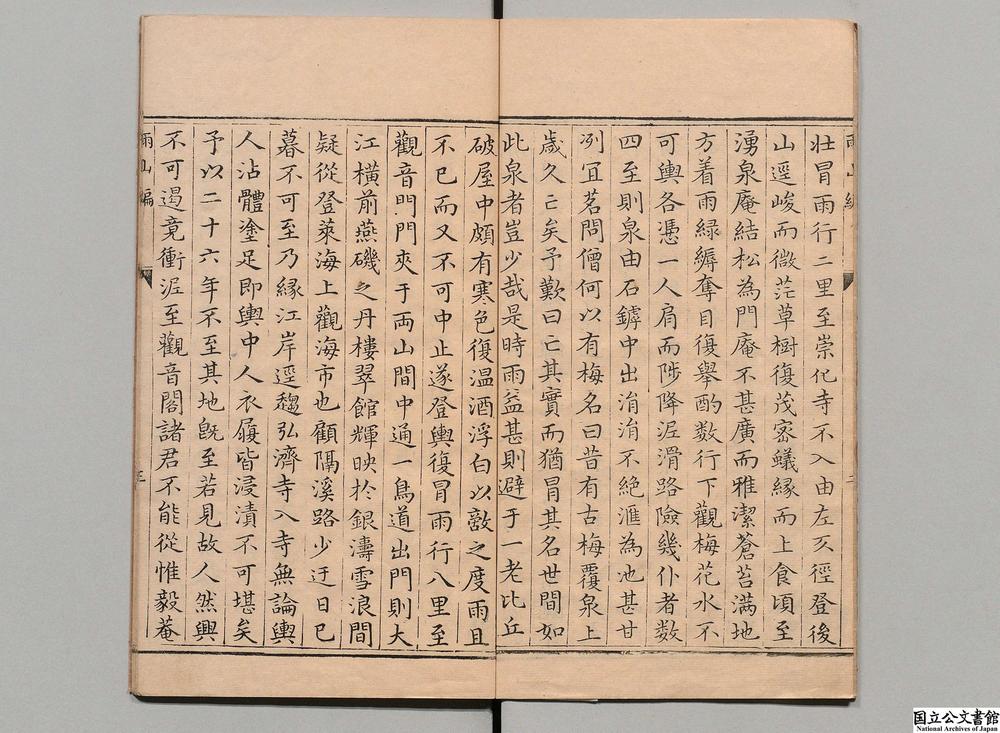 雨山編
壮冒雨行二里至崇化寺不入由左又徑登後
山逕峻而微茫草樹復茂密蟻緣而上食頃至
湧泉庵結松為門庵不甚廣而雅潔蒼苔滿地
方着雨緑縟奪目復舉酌数行下觀梅花水不
可輿各憑一人肩而陟降泥滑路險幾仆者数
四至則泉由石罅中出涓涓不絶滙為池甚甘
冽冝茗問僧何以有梅名曰昔有古梅覆泉上
歲久亡矣予歎曰亡其實而猶冒其名世間如
此泉者豈少哉是時雨益甚則避于一老比丘
破屋中頗有寒色復温酒浮白以敵之度雨且
不已而又不可中止遂登輿復冒雨行八里至
觀音門門夾于両山間中通一鳥道出門則大
江橫前燕磯之丹樓翠館輝映於銀濤雪浪間
疑從登萊海上觀海市也顧隔溪路少迂日已
暮不可至乃縁江岸逕趨弘濟寺入寺無論輿
人沾體塗足即輿中人衣履皆浸漬不可堪矣
予以二十六年不至其地旣至若見故人然興
不可遏竟衝泥至觀音閣諸君不能從惟毅菴
雨山編
三
国立公文書館
National Archives of Japan